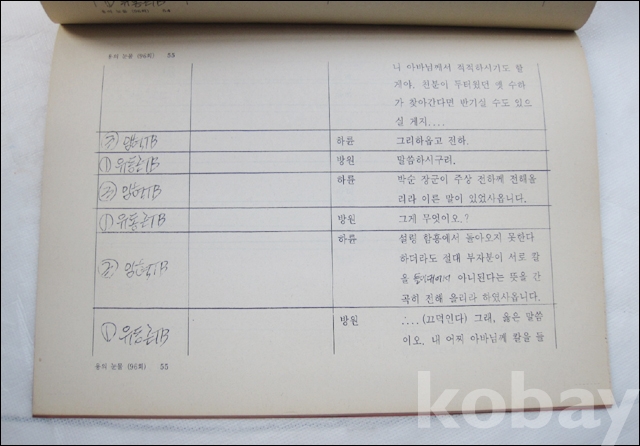 용의 눈물 (96회) 53
니 아바님께서 적적하시기도 할
게야. 친분이 두터웠던 옛 수하
가 찾아간다면 반기실 수도 있으
실 게지....
하륜 그리하옵고 전하.
① 유동근TB 방원 말씀하시구려.
하륜 박순 장군이 주상 전하께 전해올
리라 이른 말이 있었사옵니다.
① 유동근TB 방원 그게 무엇이오.?
하륜 설령 함흥에서 돌아오지 못한다
하더라도 절대 부자분이 서로 칼
을 아니된다는 뜻을 간
곡히 전해 올리라 하였사옵니다.
① 유동근TB 방원 ∴...(끄덕인다) 그래, 옳은 말씀
이오. 내 어찌 아바님께 칼을 들
용의 눈물 (96회) 55
kobay